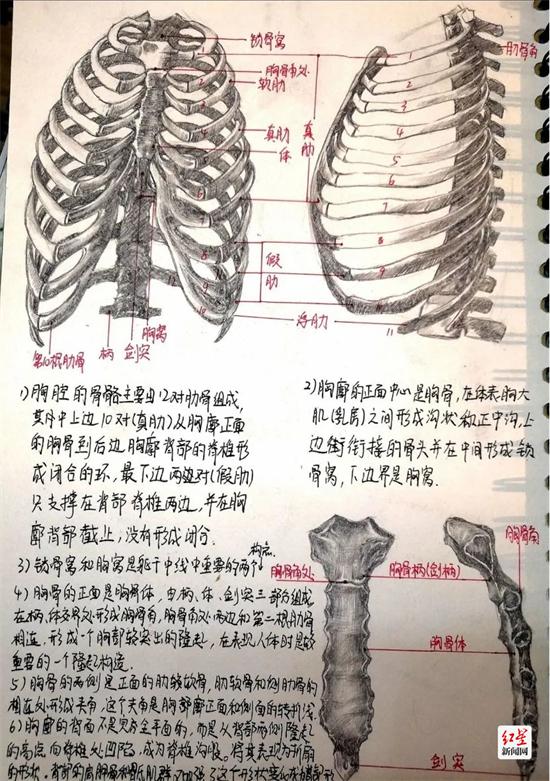 锁骨窝
胸骨角处
软肋
真肋
体
真肋
肋骨角
1
2
3
4
5
6
7
8
9
10
11
2
3
4
5
6
8
9
10
12
假肋
浮肋
第10根肋骨
柄
剑突
胸窝
1)胸腔的骨骼主要由12对肋骨组成,
其中上边10对(真肋)从胸廓正面
的胸骨到后边胸廓背部的脊椎形
成闭合的环,最下边两对(假肋)
只支撑在背部脊椎两边,并在胸
廓背部截止,没有形成闭合.
2)胸廓的正面中心是胸骨,在体表胸大
肌(乳房)之间形成沟状称正中沟,上
边衔接的骨头并在中间形成锁
骨窝,下边界是胸窝.
3)锁骨窝和胸窝是躯干中线中重要的两个构底.
4)胸廓的正面是胸骨体,由柄、体、剑突三部分组成
在柄、体交界处形成胸骨角,胸骨角处两边和第二根肋骨
相连,形成一个胸部较突出的隆起,在表现人体时是较
重要的一个隆起构造.
5)胸骨的两侧是正面的肋软骨,肋软骨和侧肋骨的
相连处形成夹角,这个夹角是胸部廓正面和侧面的转折线.
6)胸廓的背面不是完全平面的,而是从背部两侧隆起
的高点向脊椎处凹陷,成为脊椎沟
胸骨角处
胸骨柄(剑柄)
胸骨角
胸骨体
剑突
红星新闻